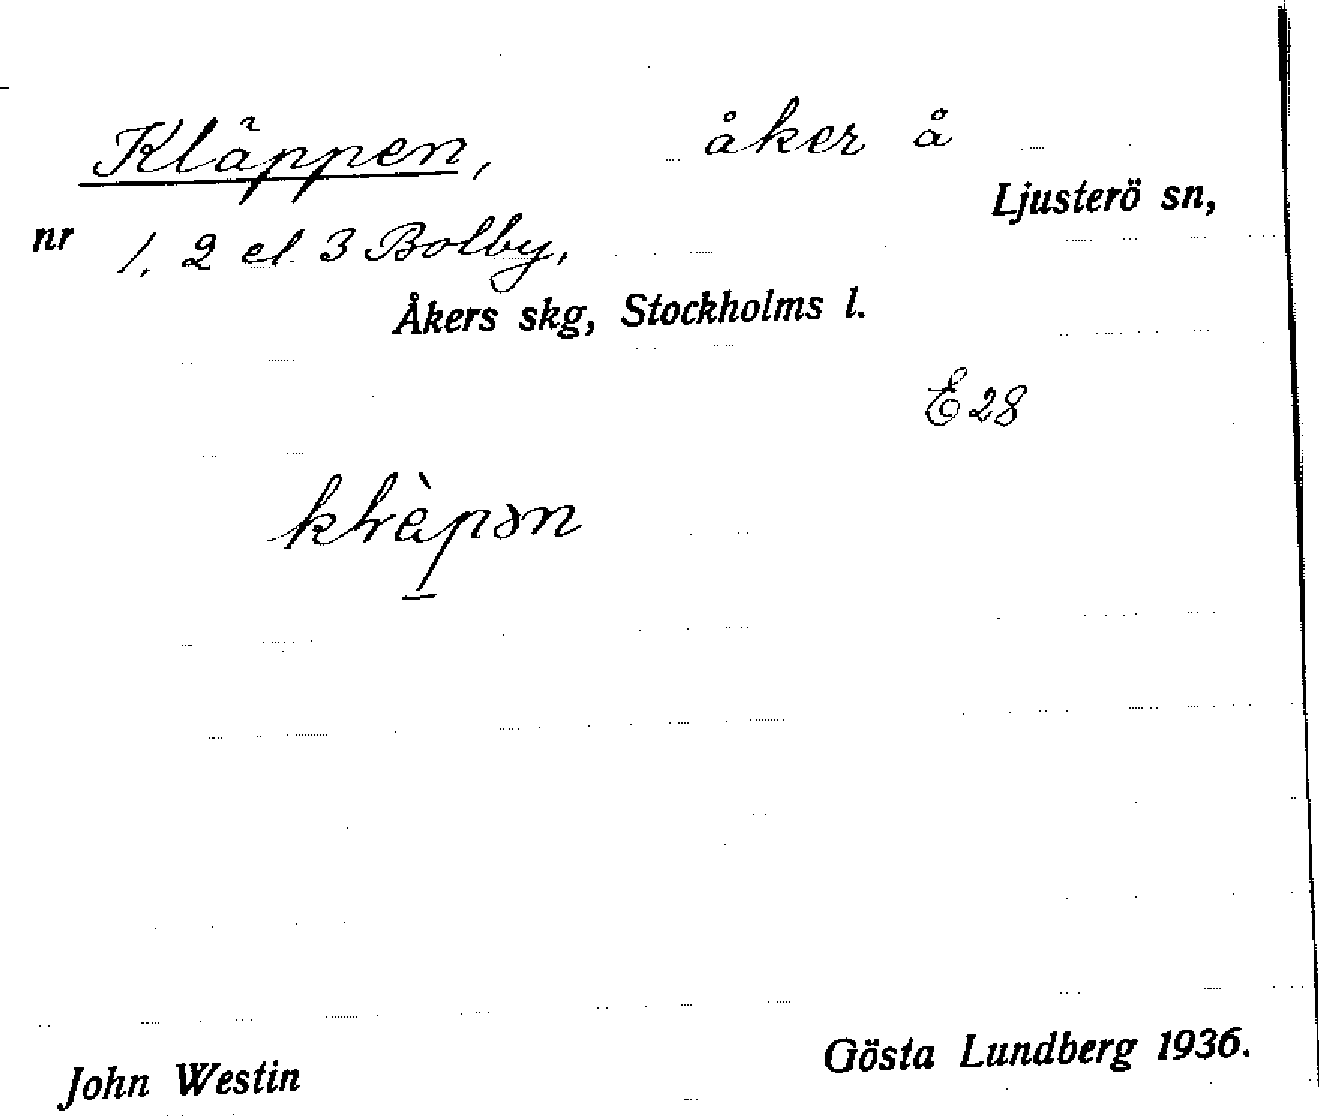 Kläppen, åker å
Ljusterö sn,
nr 1, 2 el. 3 Bolby,
Åkers skg, Stockholms l.
E 28
John Westin
Gösta Lundberg 1936.